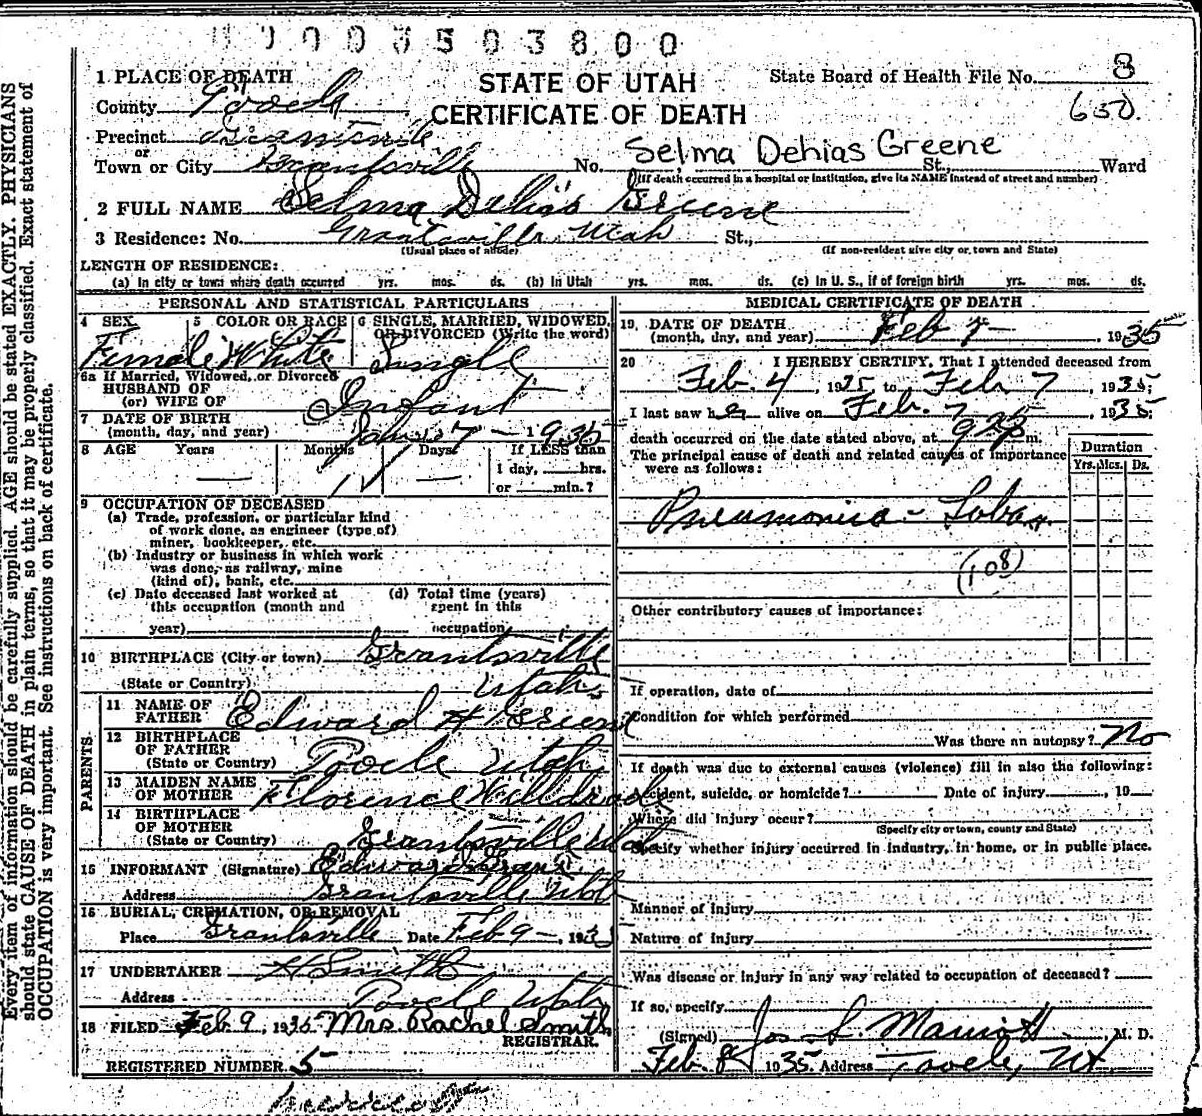 0 0 0 3 5 0 3 8 0 0
1 PLACE OF DEATH
STATE OF UTAH
State Board of Health File No. 8
County Tooele
CERTIFICATE OF DEATH
650.
Precinct Grantsville
or
Town or City Grantsville No. Selma Dehias Greene St., Ward
(If death occurred in a hospital or institution, give its NAME instead of street and number)
2 FULL NAME Selma Delias Greene
3 Residence: No. Grantsville, Utah St.,
(Usual place of abode) (If non-resident give city or town and State)
LENGTH OF RESIDENCE:
(a) In city or town where death occurred yrs. mos. ds. (b) In Utah yrs. mos. ds. (c) In U. S., if of foreign birth yrs. mos. ds.
PERSONAL AND STATISTICAL PARTICULARS
4 SEX 5 COLOR OR RACE 6 SINGLE, MARRIED, WIDOWED,
OR DIVORCED (Write the word)
Female White Single
6a If Married, Widowed, or Divorced
HUSBAND OF
(or) WIFE OF Infant
7 DATE OF BIRTH
(month, day, and year) Jan 7 - 1935
8 AGE Years Months Days If LESS than
1 day, hrs.
or min.?
— 1 —
9 OCCUPATION OF DECEASED
(a) Trade, profession, or particular kind
of work done, as engineer (type of)
miner, bookkeeper, etc.
(b) Industry or business in which work
was done, as railway, mine
(kind of), bank, etc.
(c) Date deceased last worked at
this occupation (month and
year)
(d) Total time (years)
spent in this
occupation
10 BIRTHPLACE (City or town) Grantsville
(State or Country) Utah
PARENTS
11 NAME OF
FATHER Edward H Greene
12 BIRTHPLACE
OF FATHER
(State or Country) Tooele Utah
13 MAIDEN NAME
OF MOTHER Florence
14 BIRTHPLACE
OF MOTHER
(State or Country) Grantsville Utah
15 INFORMANT (Signature) Edward Greene
Address Grantsville Utah
16 BURIAL, CREMATION, OR REMOVAL
Place Grantsville Date Feb 9 -, 1935
17 UNDERTAKER H Smith
Address Tooele Utah
18 FILED Feb 9, 1935 Mrs. Rachel Smith
REGISTRAR.
REGISTERED NUMBER 5
MEDICAL CERTIFICATE OF DEATH
19 DATE OF DEATH
(month, day, and year) Feb 7 -, 1935
20 I HEREBY CERTIFY, That I attended deceased from
Feb. 4, 1935 to Feb 7, 1935;
I last saw her alive on Feb. 7, 1935;
death occurred on the date stated above, at 925 pm.
The principal cause of death and related causes of importance
were as follows:
Duration
Yrs. Mos. Ds.
Pneumonia - Lobar
(108)
Other contributory causes of importance:
If operation, date of
Condition for which performed
Was there an autopsy? No
If death was due to external causes (violence) fill in also the following:
Accident, suicide, or homicide? Date of injury , 19
Where did injury occur?
(Specify city or town, county and State)
Specify whether injury occurred in industry, in home, or in public place.
Manner of injury
Nature of injury
Was disease or injury in any way related to occupation of deceased?
If so, specify
(Signed) Jos. L. Marriott, M. D.
Feb. 8 1935. Address Tooele, Ut
Every item of information should be carefully supplied. AGE should be stated EXACTLY. PHYSICIANS
should state CAUSE OF DEATH in plain terms, so that it may be properly classified. Exact statement of
OCCUPATION is very important. See instructions on back of certificate.